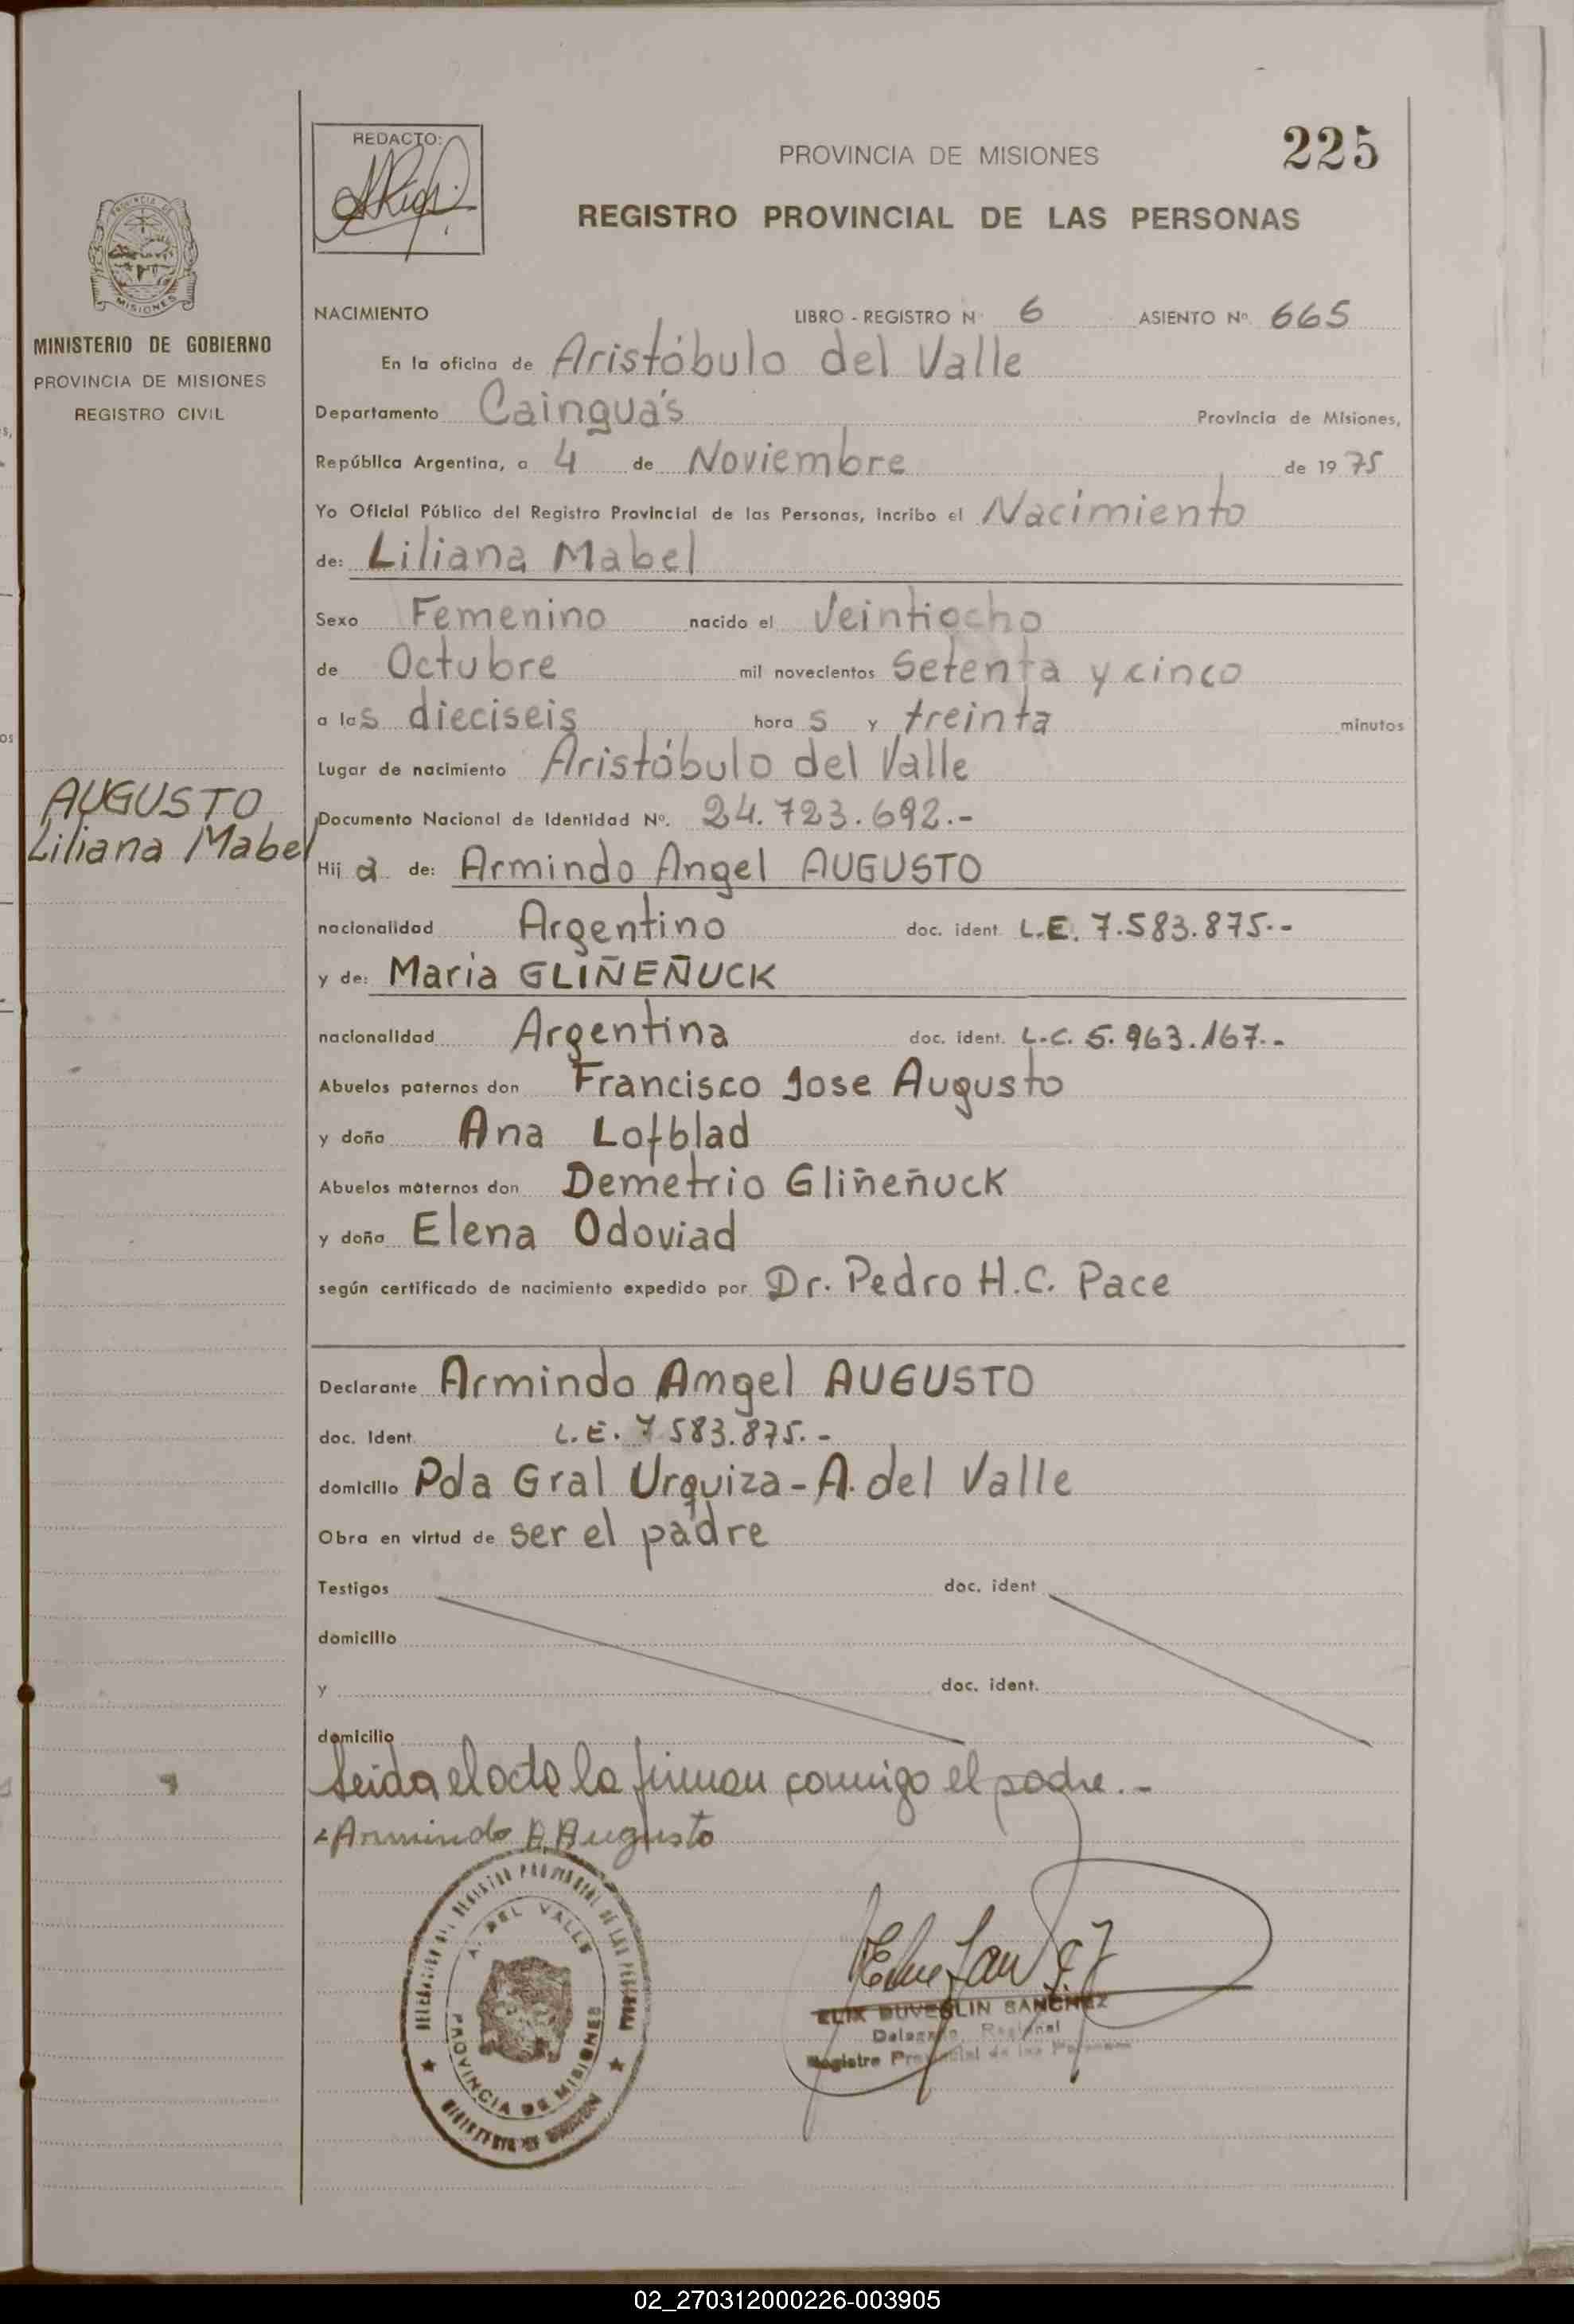 REDACTO:
PROVINCIA DE MISIONES
225
REGISTRO PROVINCIAL DE LAS PERSONAS
MISIONES
MINISTERIO DE GOBIERNO
PROVINCIA DE MISIONES
REGISTRO CIVIL
AUGUSTO
Liliana Mabel
NACIMIENTO LIBRO - REGISTRO Nº 6 ASIENTO Nº 665
En la oficina de Aristóbulo del Valle
Departamento Cainguás Provincia de Misiones,
República Argentina, a 4 de Noviembre de 1975
Yo Oficial Público del Registro Provincial de las Personas, incribo el Nacimiento
de: Liliana Mabel
Sexo Femenino nacido el Veintiocho
de Octubre mil novecientos Setenta y cinco
a las dieciseis horas y treinta minutos
Lugar de nacimiento Aristóbulo del Valle
Documento Nacional de Identidad Nº. 24.723.692.-
Hija de: Armindo Angel AUGUSTO
nacionalidad Argentino doc. ident. L.E. 7.583.875.-
y de: Maria GLIÑEÑUCK
nacionalidad Argentina doc. ident. L.C. 5.963.167.-
Abuelos paternos don Francisco Jose Augusto
y doña Ana Lofblad
Abuelos maternos don Demetrio Gliñeñuck
y doña Elena Odoviad
según certificado de nacimiento expedido por Dr. Pedro H.C. Pace
Declarante Armindo Amgel AUGUSTO
doc. Ident. L.E. 7 583.875.-
domicilio Pda Gral Urquiza - A. del Valle
Obra en virtud de ser el padre
Testigos doc. ident
domicilio
y doc. ident.
domicilio
Leida el acta la firman conmigo el padre.-
Armindo A Augusto
A. DEL VALLE
PROVINCIA DE MISIONES
ELIX DUVERLIN SANCHEZ
Delegado Regional
Registro Provincial de las Personas
02_270312000226-003905